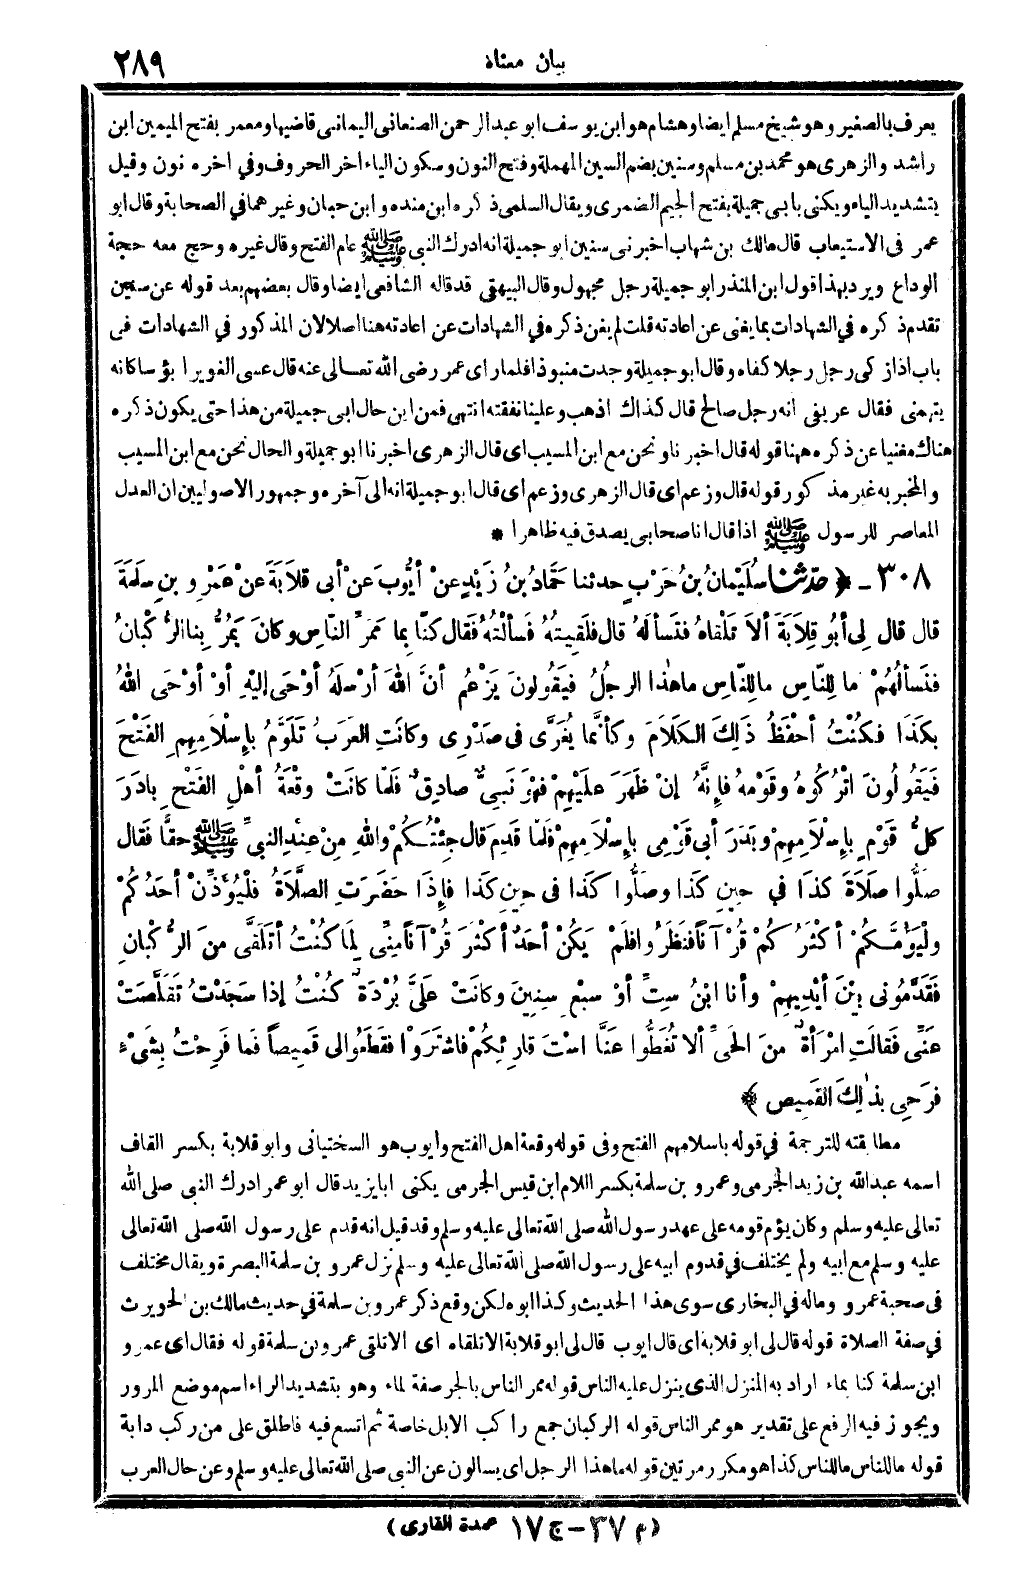 بيان معناه ٢٨٩
يعرف بالصغير وهو شيخ مسلم ايضا وهشام هو ابن يوسف ابو عبد الرحمن الصنعانى اليمانى قاضيها ومعمر بفتح الميمين ابن
راشد والزهرى هو محمد بن مسلم وسنين بضم السين المهملة وفتح النون وسكون الياء اخر الحروف وفي اخره نون وقيل
بتشديد الياء ويكنى بابى جميلة بفتح الجيم الضمرى ويقال السلمى ذكره ابن منده وابن حبان وغيرهما في الصحابة وقال ابو
عمر فى الاستيعاب قال مالك بن شهاب اخبرنى سنين ابو جميلة انه ادرك النبى ﷺ عام الفتح وقال غيره وحج معه حجة
الوداع ويرد بهذا قول ابن المنذر ابو جميلة رجل مجهول وقال البيهقى قد قاله الشافعى ايضا وقال بعضهم بعد قوله عن سنين
تقدم ذكره في الشهادات بما يغنى عن اعادته قلت لم يغن ذكره في الشهادات عن اعادته هنا اصلا لان المذكور في الشهادات فى
باب اذا زكى رجل رجلا كفاه وقال ابو جميلة وجدت منبوذا فلما راى عمر رضى الله تعالى عنه قال عسى الغوير ابؤسا كانه
يتهمنى فقال عريفى انه رجل صالح قال كذاك اذهب وعلينا نفقته انتهى فمن اين حال ابى جميلة من هذا حتى يكون ذكره
هناك مغنيا عن ذكره ههنا قوله قال اخبرنا ونحن مع ابن المسيب اى قال الزهرى اخبرنا ابو جميلة والحال نحن مع ابن المسيب
والمخبر به غير مذكور قوله قال وزعم اى قال الزهرى وزعم اى قال ابو جميلة انه الى آخره وجمهور الاصوليين ان العدل
المعاصر للرسول ﷺ اذا قال انا صحابى يصدق فيه ظاهرا *
٣٠٨ - ﴿ حَدَّثنا سُلَيْمانُ بنُ حَرْبٍ حدثنا حَمَّادُ بنُ زَيْدٍ عنْ أيُّوبَ عَنْ أبى قِلَابَةَ عَنْ عَمْرِو بنِ سلَمَةَ
قال قال لِى أبُو قِلَابَةَ ألَا تَلْقاهُ فتَسْألَهُ قال فلَقِيتُهُ فَسألْتُهُ فقال كنَّا بِما مَمَرَّ النَّاسِ وكانَ يَمُرُّ بِنا الرُّكْبانُ
فنَسْألُهُمْ ما لِلنَّاسِ ما لِلنَّاسِ ما هٰذا الرجلُ فيَقُولونَ يَزْعُمُ أنَّ اللهَ أرْسلَهُ أوْحَى إليْهِ أوْ أوْحَى اللهُ
بكَذَا فكُنْتُ أحْفَظُ ذَلِكَ الكلَامَ وكأنَّما يُغَرَّى فى صَدْرِى وكانَتِ العَرَبُ تَلَوَّمُ بإِسْلَامِهِمِ الفَتْحَ
فَيَقُولُونَ اتْرُكُوهُ وقَوْمَهُ فإِنَّهُ إنْ ظَهَرَ علَيْهِمْ فَهْوَ نَبىٌّ صادِقٌ فلَمَّا كانَتْ وقْعَةُ أهْلِ الفَتْحِ بادَرَ
كلُّ قَوْمٍ بإِسْلَامِهِمْ وبَدَرَ أبى قَوْمِى بإِسْلَامِهِمْ فلَمَّا قَدِمَ قال جِئْتُكُمْ واللهِ مِنْ عِنْدِ النبىِّ ﷺ حقًّا فقال
صَلُّوا صلَاةَ كَذَا في حِينِ كَذَا وصلُّوا كَذا فى حِينِ كَذا فإِذَا حَضَرَتِ الصَّلَاةُ فلْيُؤَذِّنْ أحَدُكُمْ
ولْيَؤُمَّكُمْ أكْثَرُكُمْ قُرْآنًا فنظَرُوا فلَمْ يَكُنْ أحَدٌ أكْثَرَ قُرْآنًا مِنِّى لِما كُنْتُ أتَلَقَّى منَ الرُّكْبانِ
فَقَدَّمُونى بيْنَ أيْدِيهِمْ وأنا ابْنُ سِتٍّ أوْ سبْعِ سِنِينَ وكانَتْ علَىَّ بُرْدَةٌ كُنْتُ إذا سَجَدْتُ تَقَلَّصَتْ
عَنِّى فَقالَتِ امْرَأةٌ منَ الحَىِّ ألا تُغَطُّوا عَنَّا اسْتَ قارِئِكُمْ فاشْتَرَوْا فقَطَعُوا لى قَمِيصاً فَما فَرِحْتُ بِشَىْءٍ
فرَحِى بذٰلِكَ القَمِيص ﴾
مطابقته للترجمة في قوله باسلامهم الفتح وفى قوله وقعة اهل الفتح وايوب هو السختيانى وابو قلابة بكسر القاف
اسمه عبد الله بن زيد الجرمى وعمرو بن سلمة بكسر اللام ابن قيس الجرمى يكنى ابا يزيد قال ابو عمر ادرك النبى صلى الله
تعالى عليه وسلم وكان يؤم قومه على عهد رسول الله صلى الله تعالى عليه وسلم وقد قيل انه قدم على رسول الله صلى الله تعالى
عليه وسلم مع ابيه ولم يختلف في قدوم ابيه على رسول الله صلى الله تعالى عليه وسلم نزل عمرو بن سلمة البصرة ويقال مختلف
فى صحبة عمرو وماله في البخارى سوى هذا الحديث وكذا ابوه لكن وقع ذكر عمرو بن سلمة في حديث مالك بن الحويرث
في صفة الصلاة قوله قال لى ابو قلابة اى قال ايوب قال لى ابو قلابة الا تلقاه اى الا تلقى عمرو بن سلمة قوله فقال اى عمرو
ابن سلمة كنا بماء اراد به المنزل الذى ينزل عليه الناس قوله ممر الناس بالجر صفة لماء وهو بتشديد الراء اسم موضع المرور
ويجوز فيه الرفع على تقدير هو ممر الناس قوله الركبان جمع راكب الابل خاصة ثم اتسع فيه فاطلق على من ركب دابة
قوله ما للناس ما للناس كذا هو مكرر مرتين قوله ما هذا الرجل اى يسالون عن النبى صلى الله تعالى عليه وسلم وعن حال العرب
(م ٣٧ - ج ١٧ عمدة القارى)